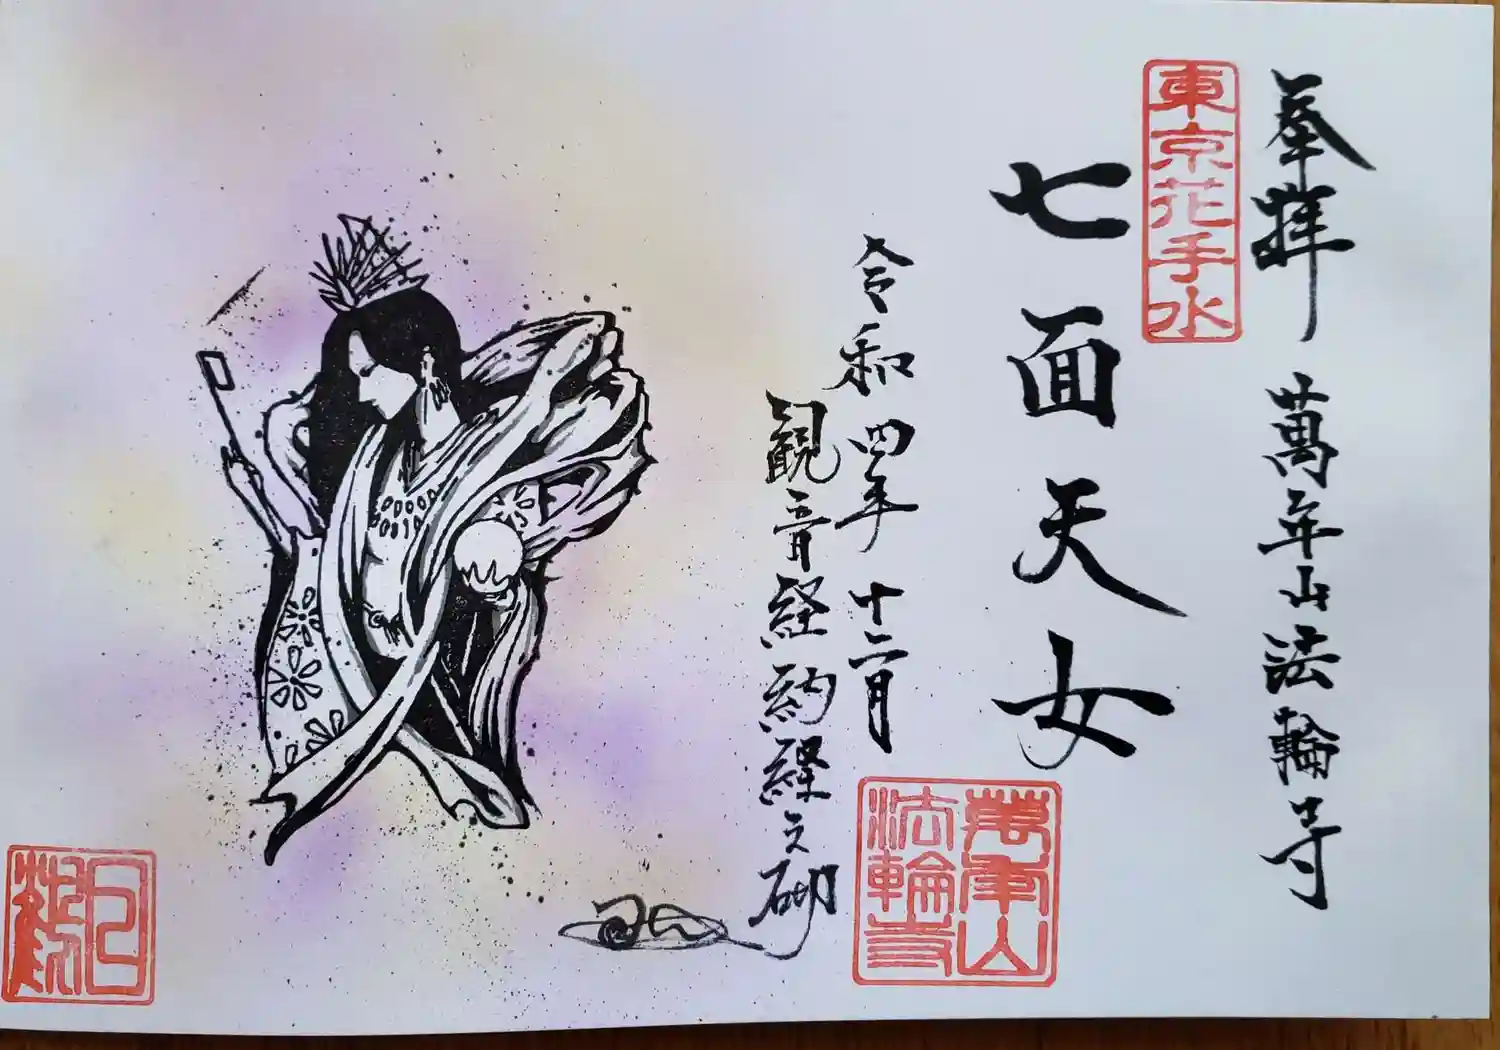 奉拝
萬年山法輪寺
東京花手水
七面天女
令和四年十二月
観音経約経之砌
萬年山
法輪寺